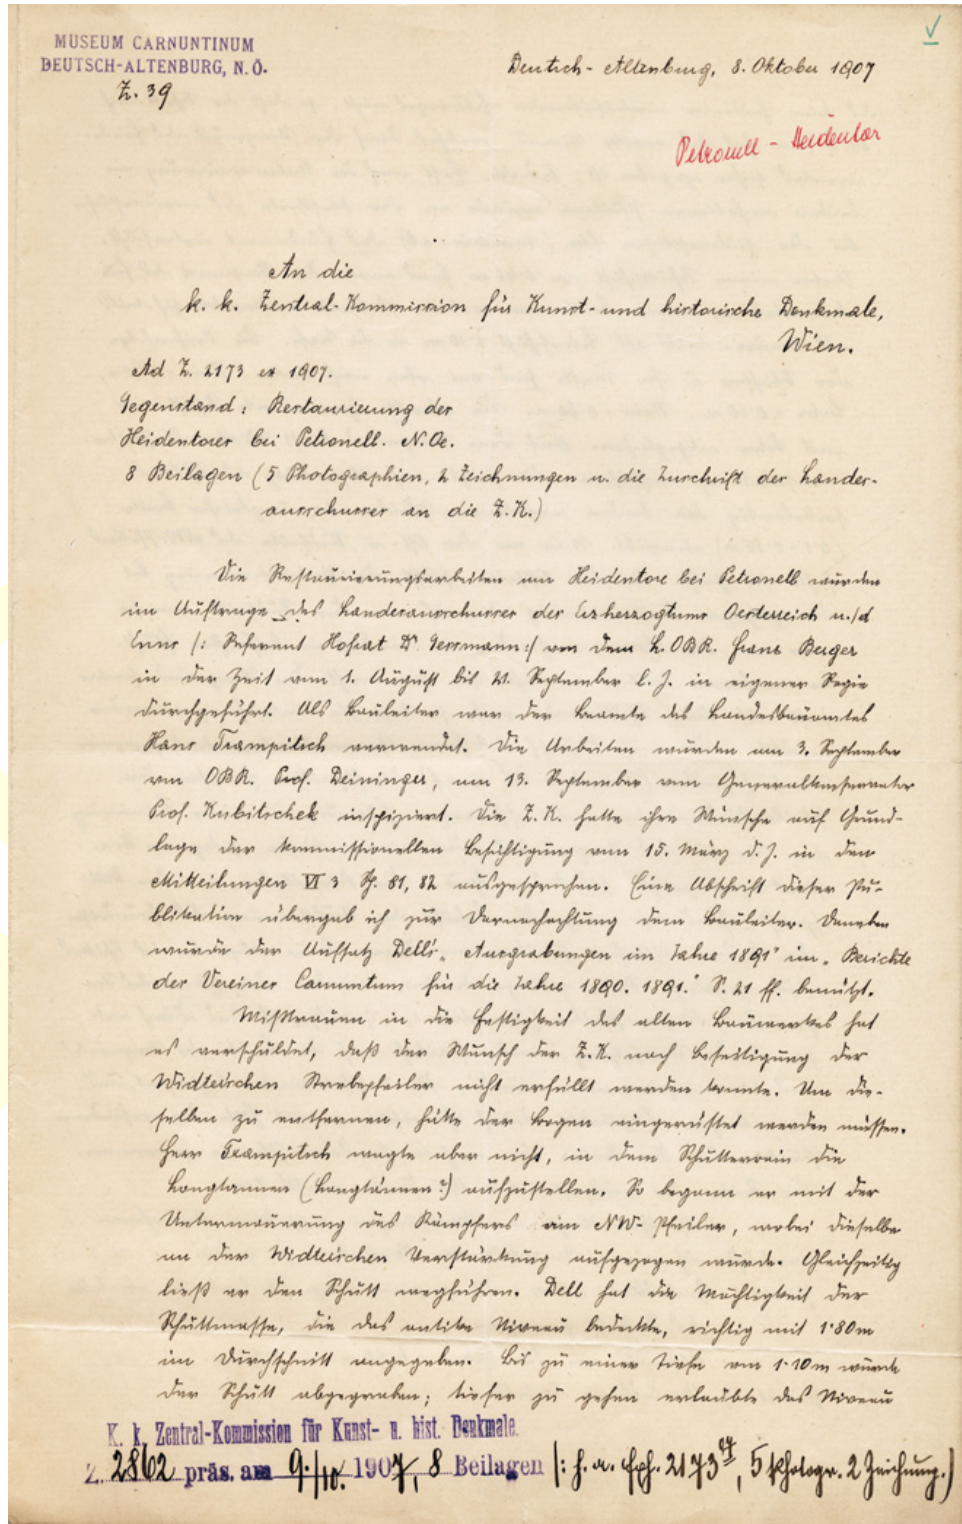 MUSEUM CARNUNTINUM
DEUTSCH-ALTENBURG, N.Ö.
Z. 39
Deutsch-Altenburg, 8. Oktober 1907
Petronell - Heidentor
An die
k. k. Zentral-Kommission für Kunst- und historische Denkmale,
Wien.
Ad Z. 2173 ex 1907.
Gegenstand: Restaurierung des
Heidentores bei Petronell. N.Oe.
8 Beilagen (5 Photographien, 2 Zeichnungen u. die Zuschrift des Landes-
ausschusses an die Z.K.)
Die Restaurierungsarbeiten am Heidentore bei Petronell wurden
im Auftrage des Landesausschusses des Erzherzogtums Oesterreich u./d
Enns /: Referent Hofrat Dr Gessmann :/ von dem L.OBR. Franz Berger
in der Zeit vom 1. August bis 21. September l. J. in eigener Regie
durchgeführt. Als Bauleiter war der Beamte des Landesbauamtes
Hans Trampitsch verwendet. Die Arbeiten wurden am 3. September
von OBR. Prof. Deininger, am 13. September vom Generalkonservator
Prof. Kubitschek inspiziert. Die Z.K. hatte ihre Wünsche auf Grund-
lage der kommissionellen Besichtigung vom 15. März d. J. in den
Mitteilungen VI 3 Sp. 81, 82 ausgesprochen. Eine Abschrift dieser Pu-
blikation übergab ich zur Darnachachtung dem Bauleiter. Daneben
wurde der Aufsatz Dell's „Ausgrabungen im Jahre 1891" im „Berichte
des Vereines Carnuntum für die Jahre 1890. 1891." S. 21 ff. benützt.
Mißtrauen in die Festigkeit des alten Bauwerkes hat
es verschuldet, daß der Wunsch der Z.K. nach Beseitigung der
Widter'schen Strebepfeiler nicht erfüllt werden konnte. Um die-
selben zu entfernen, hätte der Bogen eingerüstet werden müssen.
Herr Trampitsch wagte aber nicht, in dem Schutterrain die
Langtannen (Langtännen?) aufzustellen. So begann er mit der
Untermauerung des Kämpfers am NW-Pfeiler, wobei dieselbe
an der Widter'schen Verstärkung aufgezogen wurde. Gleichzeitig
ließ er den Schutt wegführen. Dell hat die Mächtigkeit der
Schuttmasse, die das antike Niveau bedeckte, richtig mit 1·80m
im Durchschnitt angegeben. Bis zu einer Tiefe von 1·10m wurde
der Schutt abgegraben; tiefer zu gehen erlaubte das Niveau
K. k. Zentral-Kommission für Kunst- u. hist. Denkmale.
Z. 2862 präs. am 9./10. 1907, 8 Beilagen (: h. a. 2173, 5 Photogr. 2 Zeichnung.)